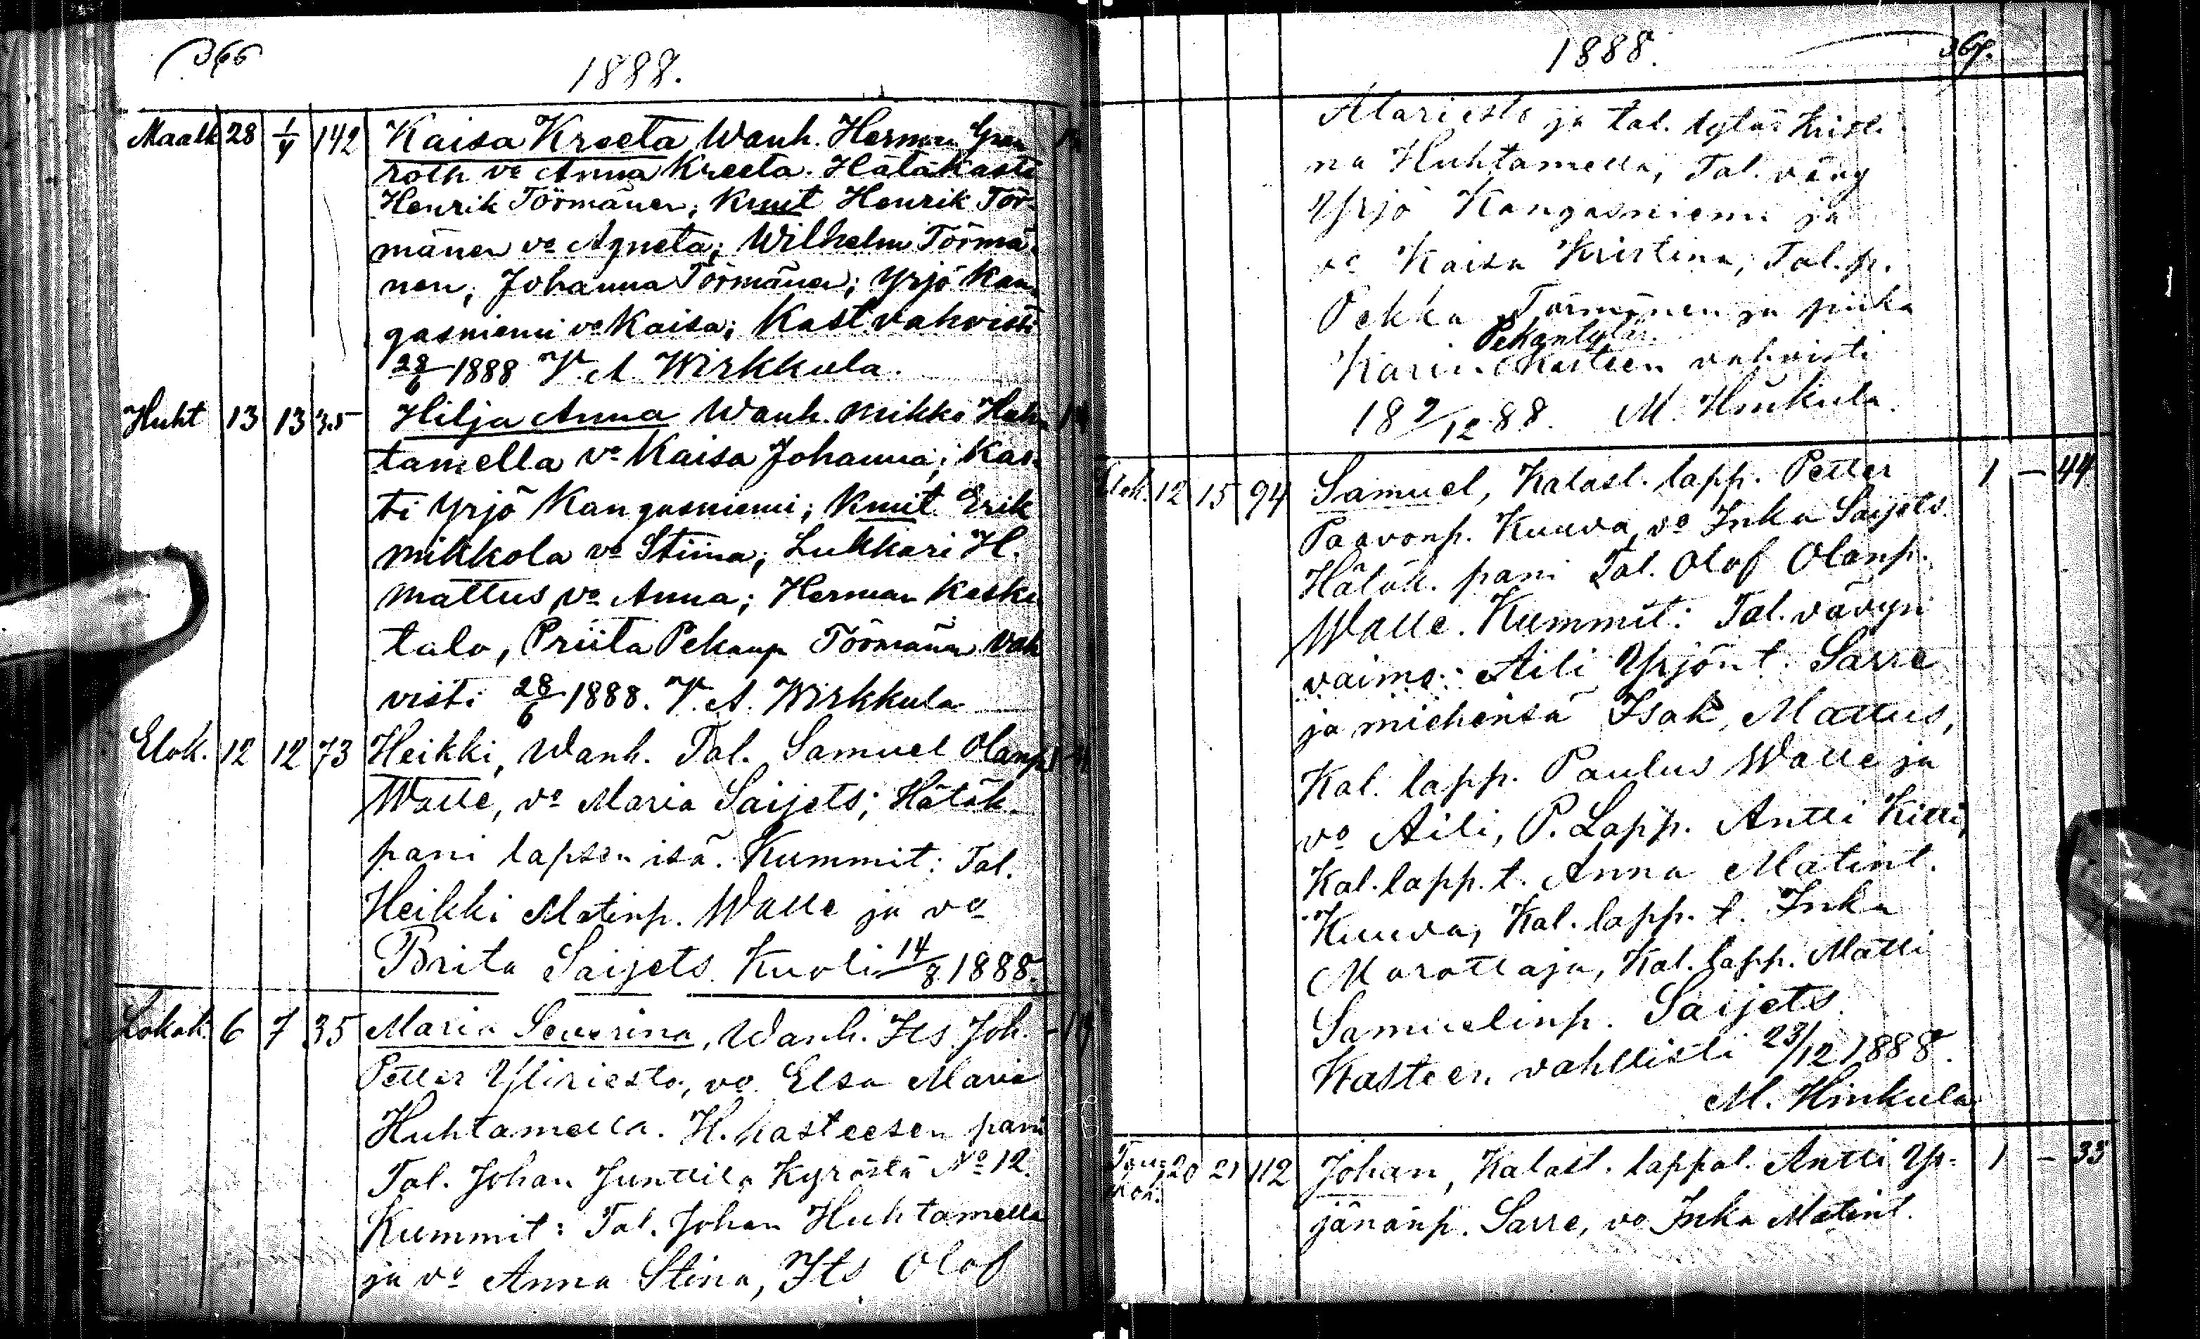 366
1888.
Maalk 28 1/4 142 Kaisa Kreeta Wanh. Herman
roth vo Anna Kreeta. Hätäkasti
Henrik Törmänen; Kmit Henrik Tör-
mänen vo Agneta; Wilhelm Törmä-
nen; Johanna Törmänen; Yrjö Kan-
gasniemi vo Kaisa; Kast. vahvisti
28/6 1888 V. A. Wirkkula.
Huht 13 13 35 Hilja Anna Wanh. Mikko Huh-
tamella vo Kaisa Johanna; Kas-
ti Yrjö Kangasniemi; Kmit Erik
Mikkola vo Stiina; Lukkari H.
Mattus vo Anna; Herman Keski-
talo, Priita Pekanp Törmänen Vah
visti 28/6 1888. V. A. Wirkkula
Elok. 12 12 73 Heikki, Wanh. Tal. Samuel Olanp.
Walle, vo Maria Saijets; Hätäk.
pani lapsen isä. Kummit: Tal.
Heikki Matinp. Walle ja vo
Brita Saijets. Kuoli 14/8 1888.
Lokak. 6 7 35 Maria Severina, Wanh. Its. Joh.
Petter Yliriesto, vo. Elsa Maria
Huhtamella. H. kasteesen pani
Tal. Johan Junttila Kyröstä No 12.
Kummit: Tal. Johan Huhtamella
ja vo Anna Stina, Its Olof
1888. 367.
Alariesto ja tal. tytär Kristi-
na Huhtamella, Tal. vävy
Yrjö Kangasniemi ja
vo Kaisa Kristina, Tal. p.
Pekka Törmänen ja piika
Pekantytär.
Karin Kasteen vahvisti
18 9/12 88. M. Hinkula.
Elok. 12 15 94 Samuel, Kalast. lapp. Petter 1 – 44
Paavonp. Kuuva, vo Inka Saijets.
Hätäk. pani Tal. Olof Olanp.
Walle. Kummit: Tal. vävyn
vaimo: Aili Yrjönt. Sarre
ja miehensä Isak Mattus,
Kal. lapp. Paulus Walle ja
vo Aili, P. Lapp. Antti Kitti,
Kal. lapp. t. Anna Matint.
Kuuva, Kal. lapp. t. Inka
Morottaja, Kal. lapp. Matti
Samuelinp. Saijets.
Kasteen vahvisti 23/12 1888.
M. Hinkula
20 21 112 Johan, Kalast. lappal. Antti Yr- 1 – 35
jänänp. Sarre, vo Inka Matint.